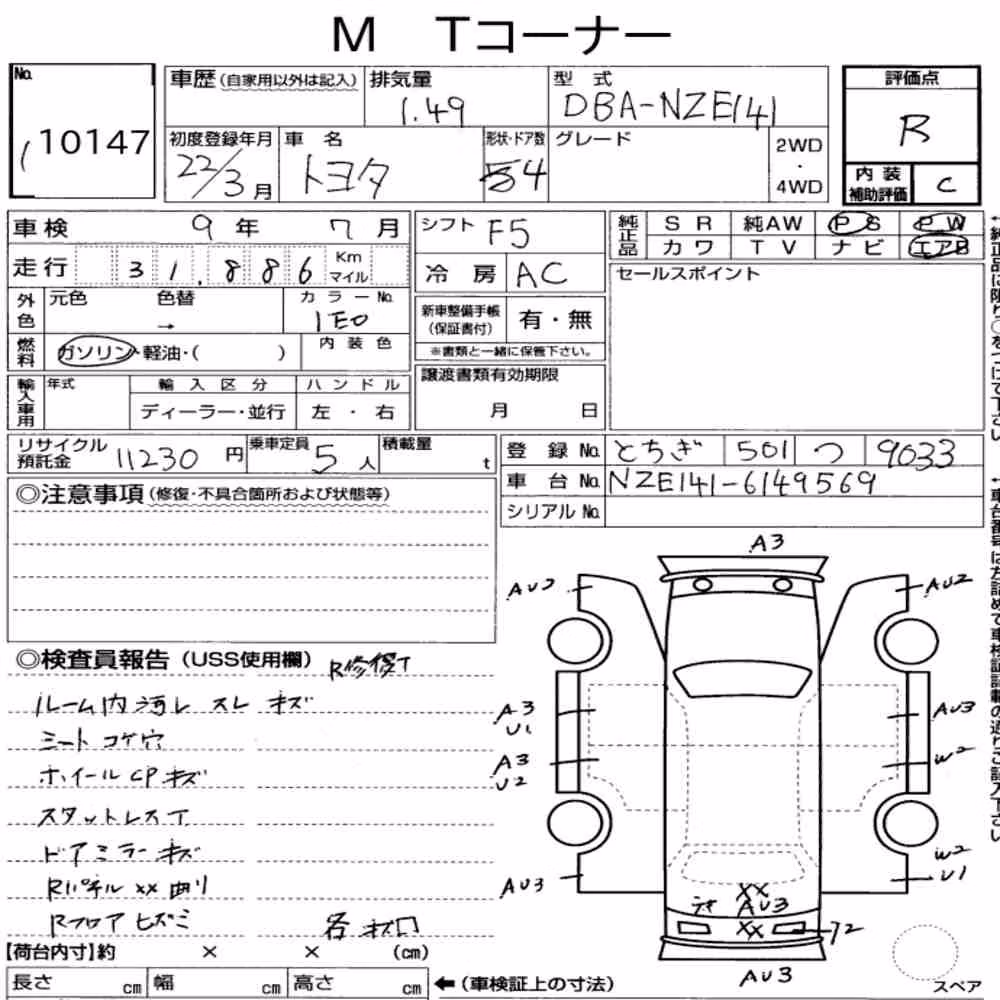 M Tコーナー
No.
10147
車歴(自家用以外は記入)
排気量
1.49
型式
DBA-NZE141
評価点
R
初度登録年月
22/3月
車名
トヨタ
形状・ドア数
4
グレード
2WD
・
4WD
内装
補助評価
C
車検 9年 7月
シフト F5
純正品
SR 純AW PS PW
カワ TV ナビ エアB
走行 31,886 Km マイル
冷房 AC
セールスポイント
外色
元色 色替 カラーNo.
→ 1E0
新車整備手帳
(保証書付)
有・無
※書類と一緒に保管下さい。
燃料
ガソリン・軽油・( )
内装色
輸入車用
年式 輸入区分 ハンドル
ディーラー・並行 左・右
譲渡書類有効期限
月 日
リサイクル
預託金
11230円
乗車定員
5人
積載量
t
登録No. とちぎ 501 つ 9033
車台No. NZE141-6149569
シリアルNo.
◎注意事項(修復・不具合箇所および状態等)
◎検査員報告(USS使用欄) R修復T
スレ キズ
シート コゲ穴
ホイールCPキズ
スタットレスT
ドアミラーキズ
Rパネル XX 曲り
Rフロア ヒズミ
A3
AU2
AU2
A3
U1
AU3
A3
U2
W2
AU3
W2
U1
XX
AU3
XX
AU3
スペア
【荷台内寸】約 × × (cm)
長さ cm 幅 cm 高さ cm
←(車検証上の寸法)